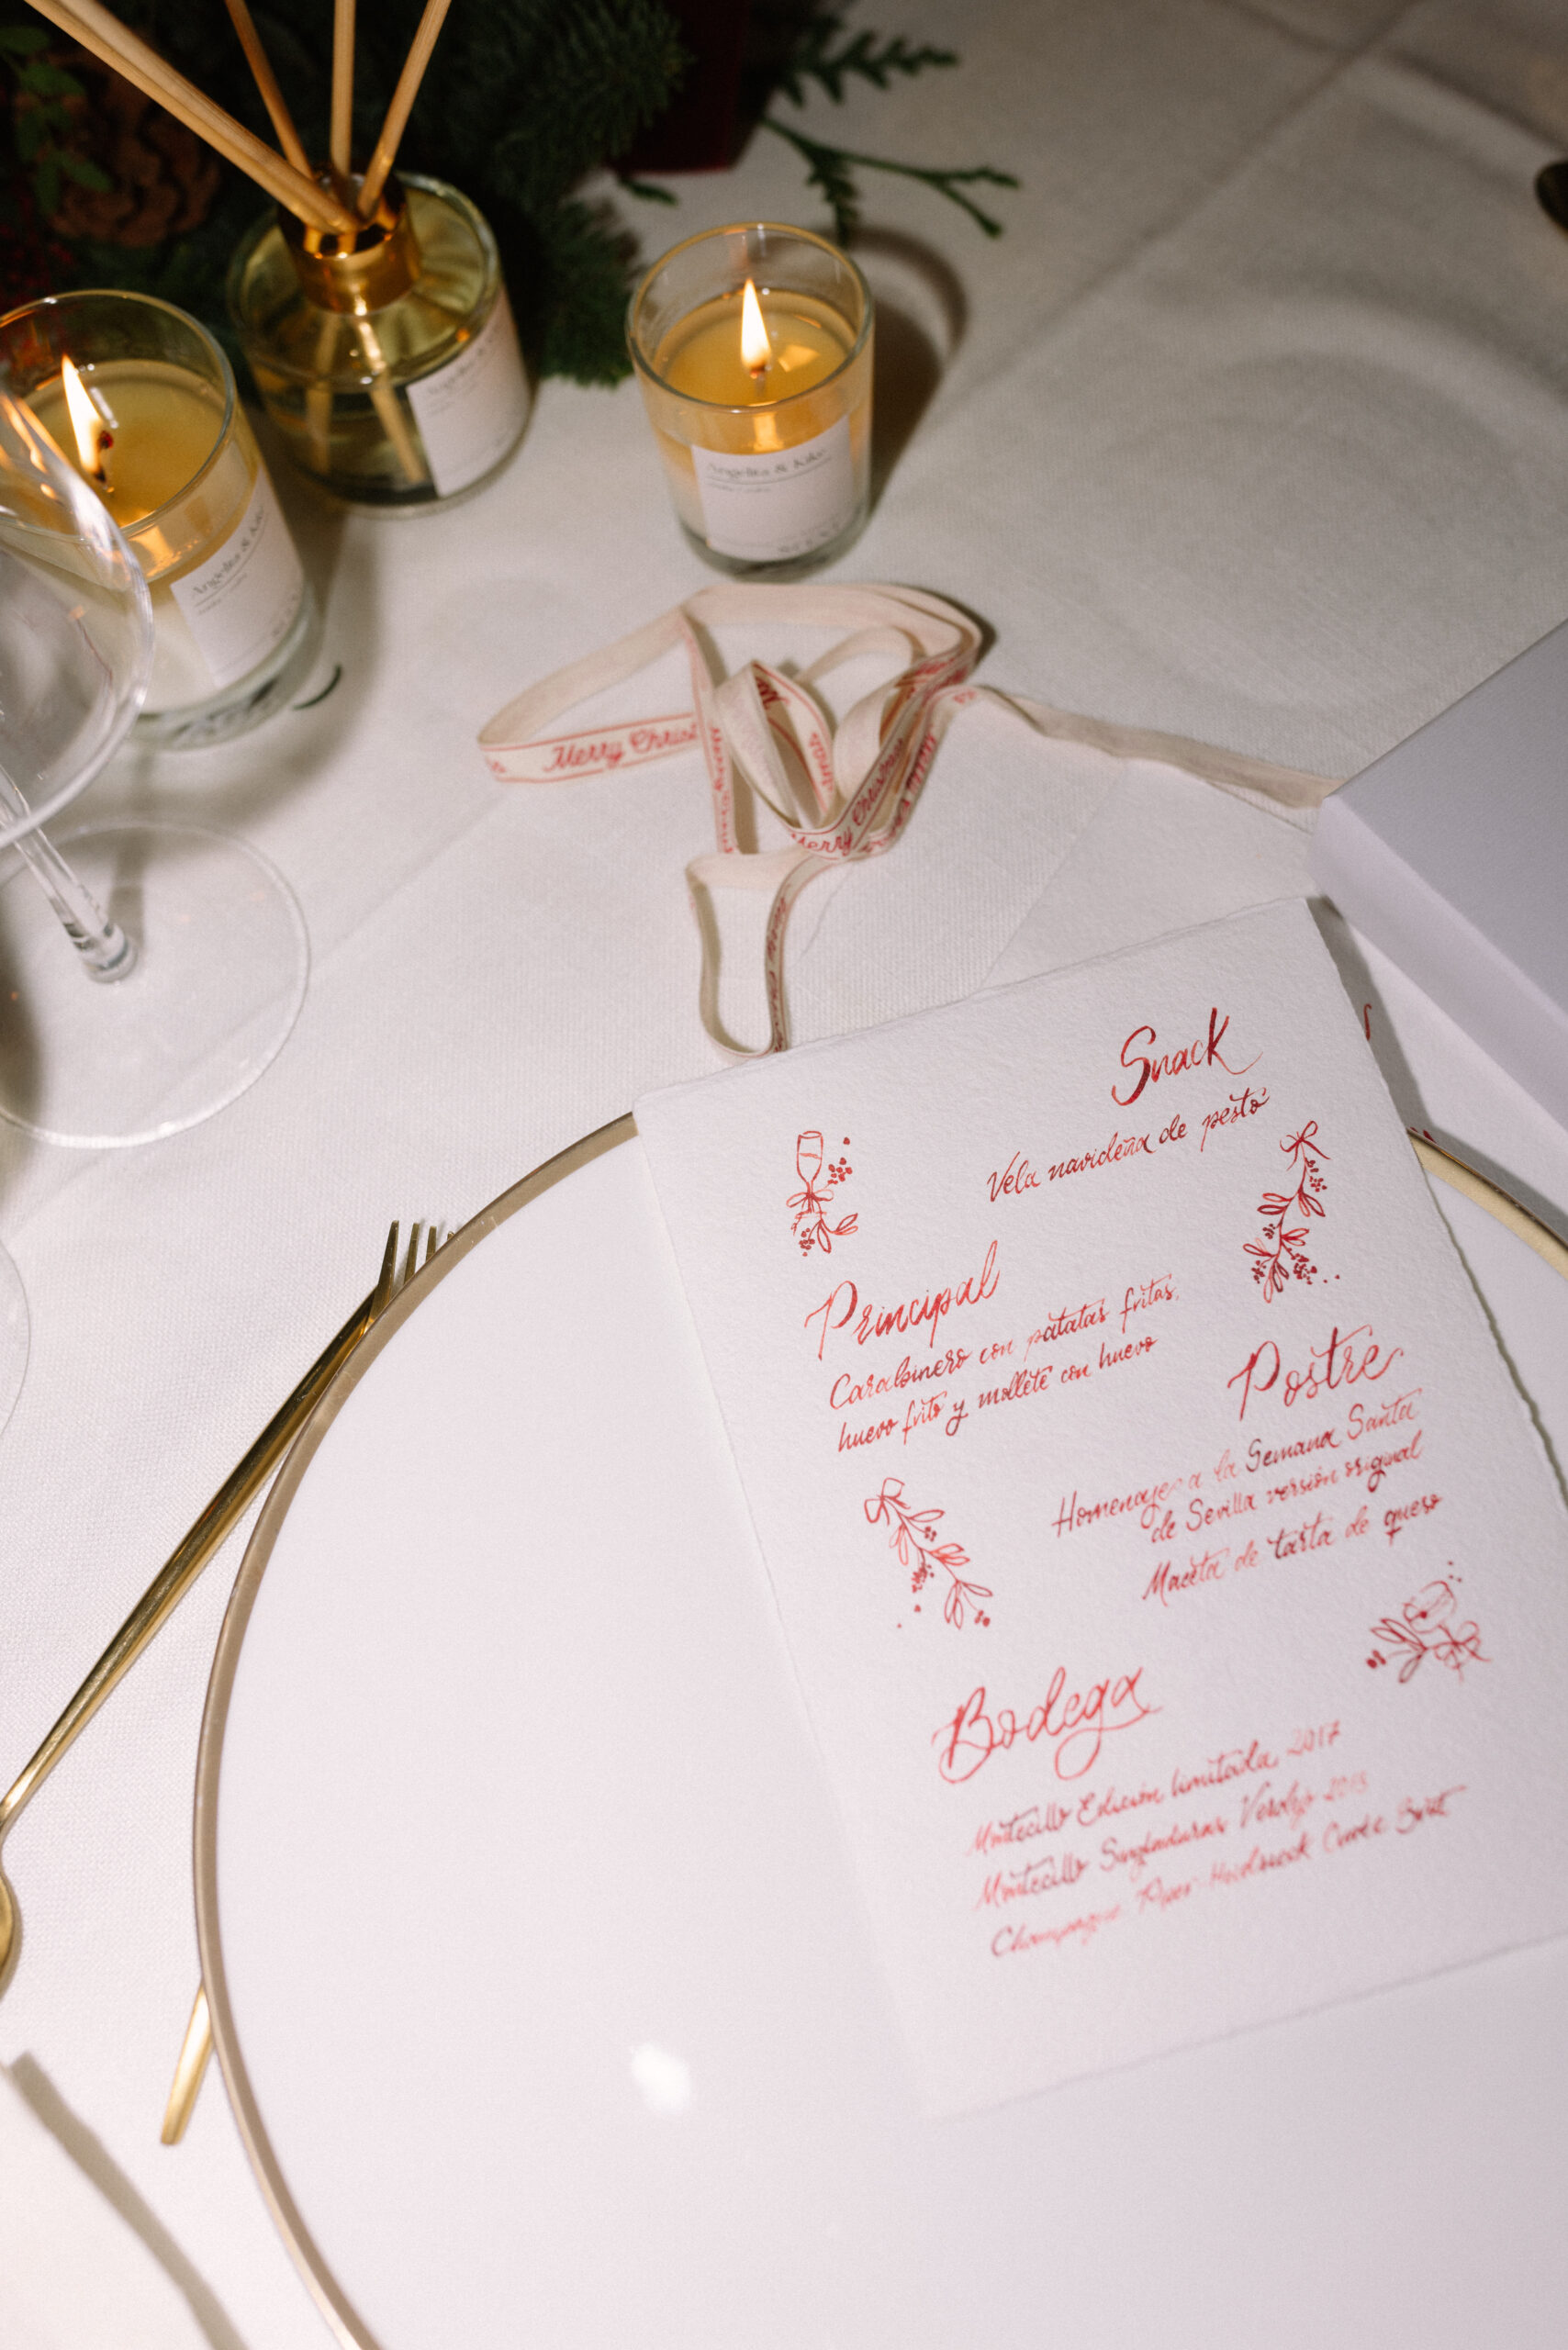 Angelita & Kike
Angelita & K
Merry Christ
Merry Christmas
Snack
Vela navideña de pesto
Principal
Carabinero con patatas fritas,
huevo frito y mollete con huevo
Postre
Homenaje a la Semana Santa
de Sevilla versión original
Maceta de tarta de queso
Bodega
Montecillo Edición limitada, 2017
Montecillo Singladuras Verdejo
Champagne Piper-Heidsieck Cuvée Brut